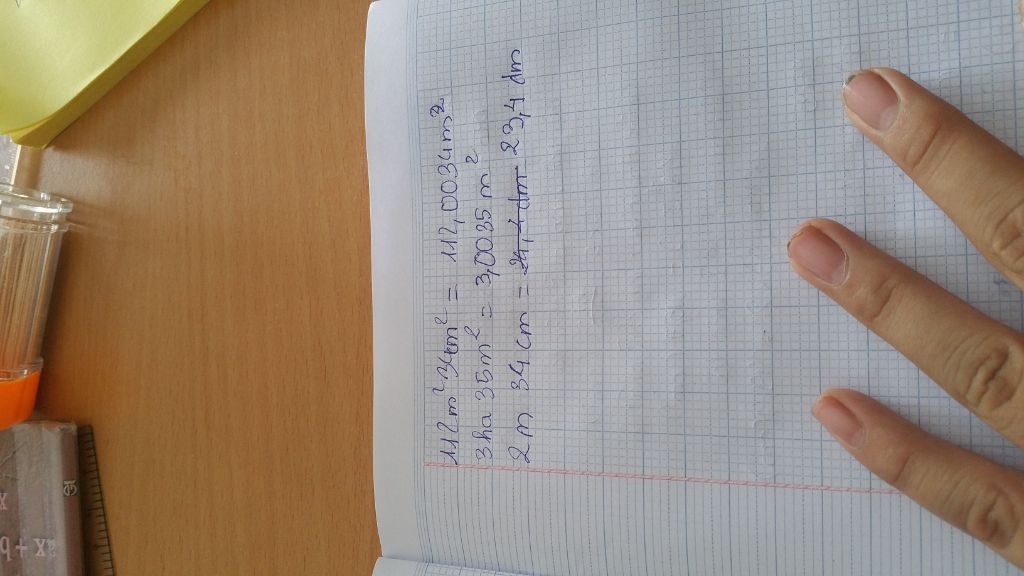 112m² 34cm² = 112,0034m²
3ha 35m² = 3,0035 m²
2m 34cm = 24,4 dm 23,4 dm
ax + b